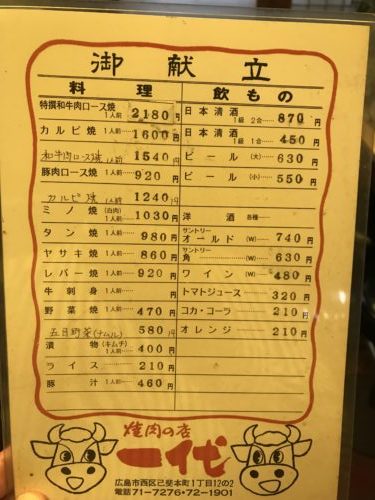 御献立
料理
特撰和牛肉ロース焼 1人前 2180円
カルビ焼 1人前 1600円
和牛肉ロース焼 1人前 1540円
豚肉ロース焼 1人前 920円
カルビ焼 1人前 1240円
ミノ焼 (白肉) 1人前 1030円
タン焼 1人前 980円
ヤサキ焼 1人前 860円
レバー焼 1人前 920円
牛刺身 1人前
野菜焼 1人前 470円
五目野菜(ナムル) 580円
漬物 (キムチ) 1人前 400円
ライス 210円
豚汁 460円
飲もの
日本清酒 1級 2合 870円
日本清酒 1級 1合 450円
ビール (大) 630円
ビール (小) 550円
洋酒 各種
サントリー オールド (W) 740円
サントリー 角 (W) 630円
ワイン (W) 480円
トマトジュース 320円
コカ・コーラ 210円
オレンジ 210円
焼肉の店
一代
広島市西区己斐本町1丁目12の2
電話71-7276・72-1901